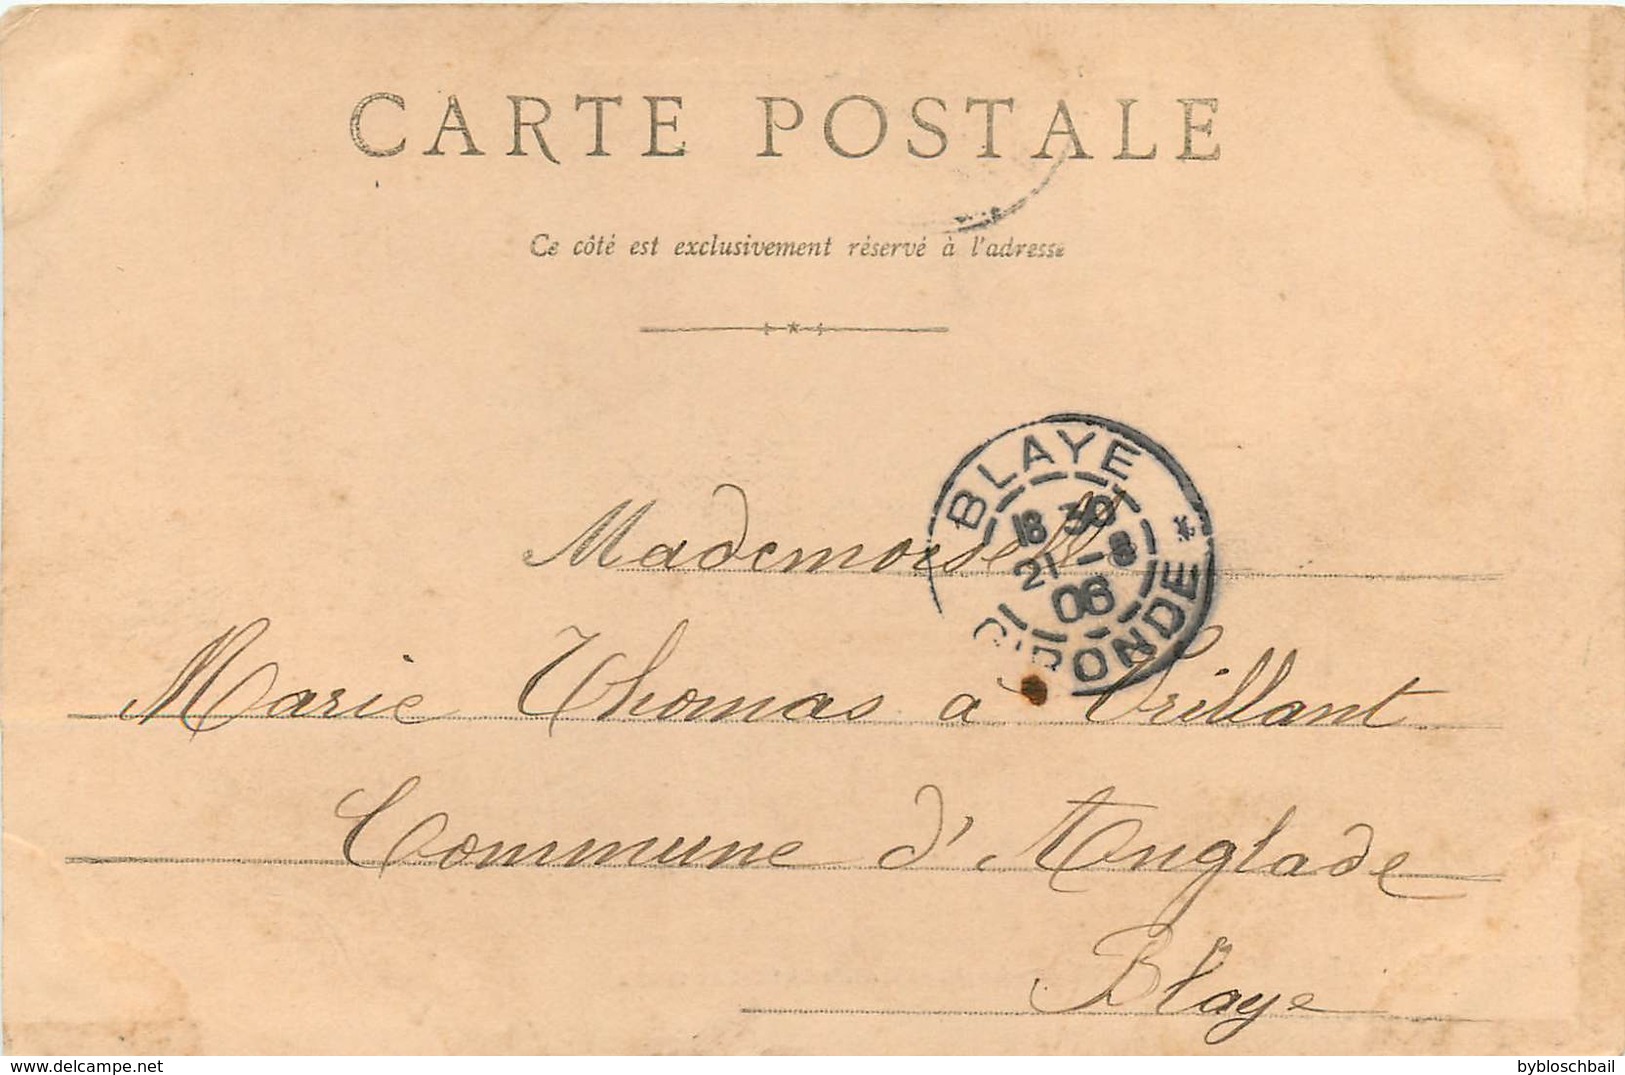 CARTE POSTALE
Ce côté est exclusivement réservé à l'adresse
BLAYE
18 30
21 - 8
06
GIRONDE
*
Mademoiselle
Marie Thomas a Brillant
Commune d'Anglade
Blaye
www.delcampe.net
bybloschbail